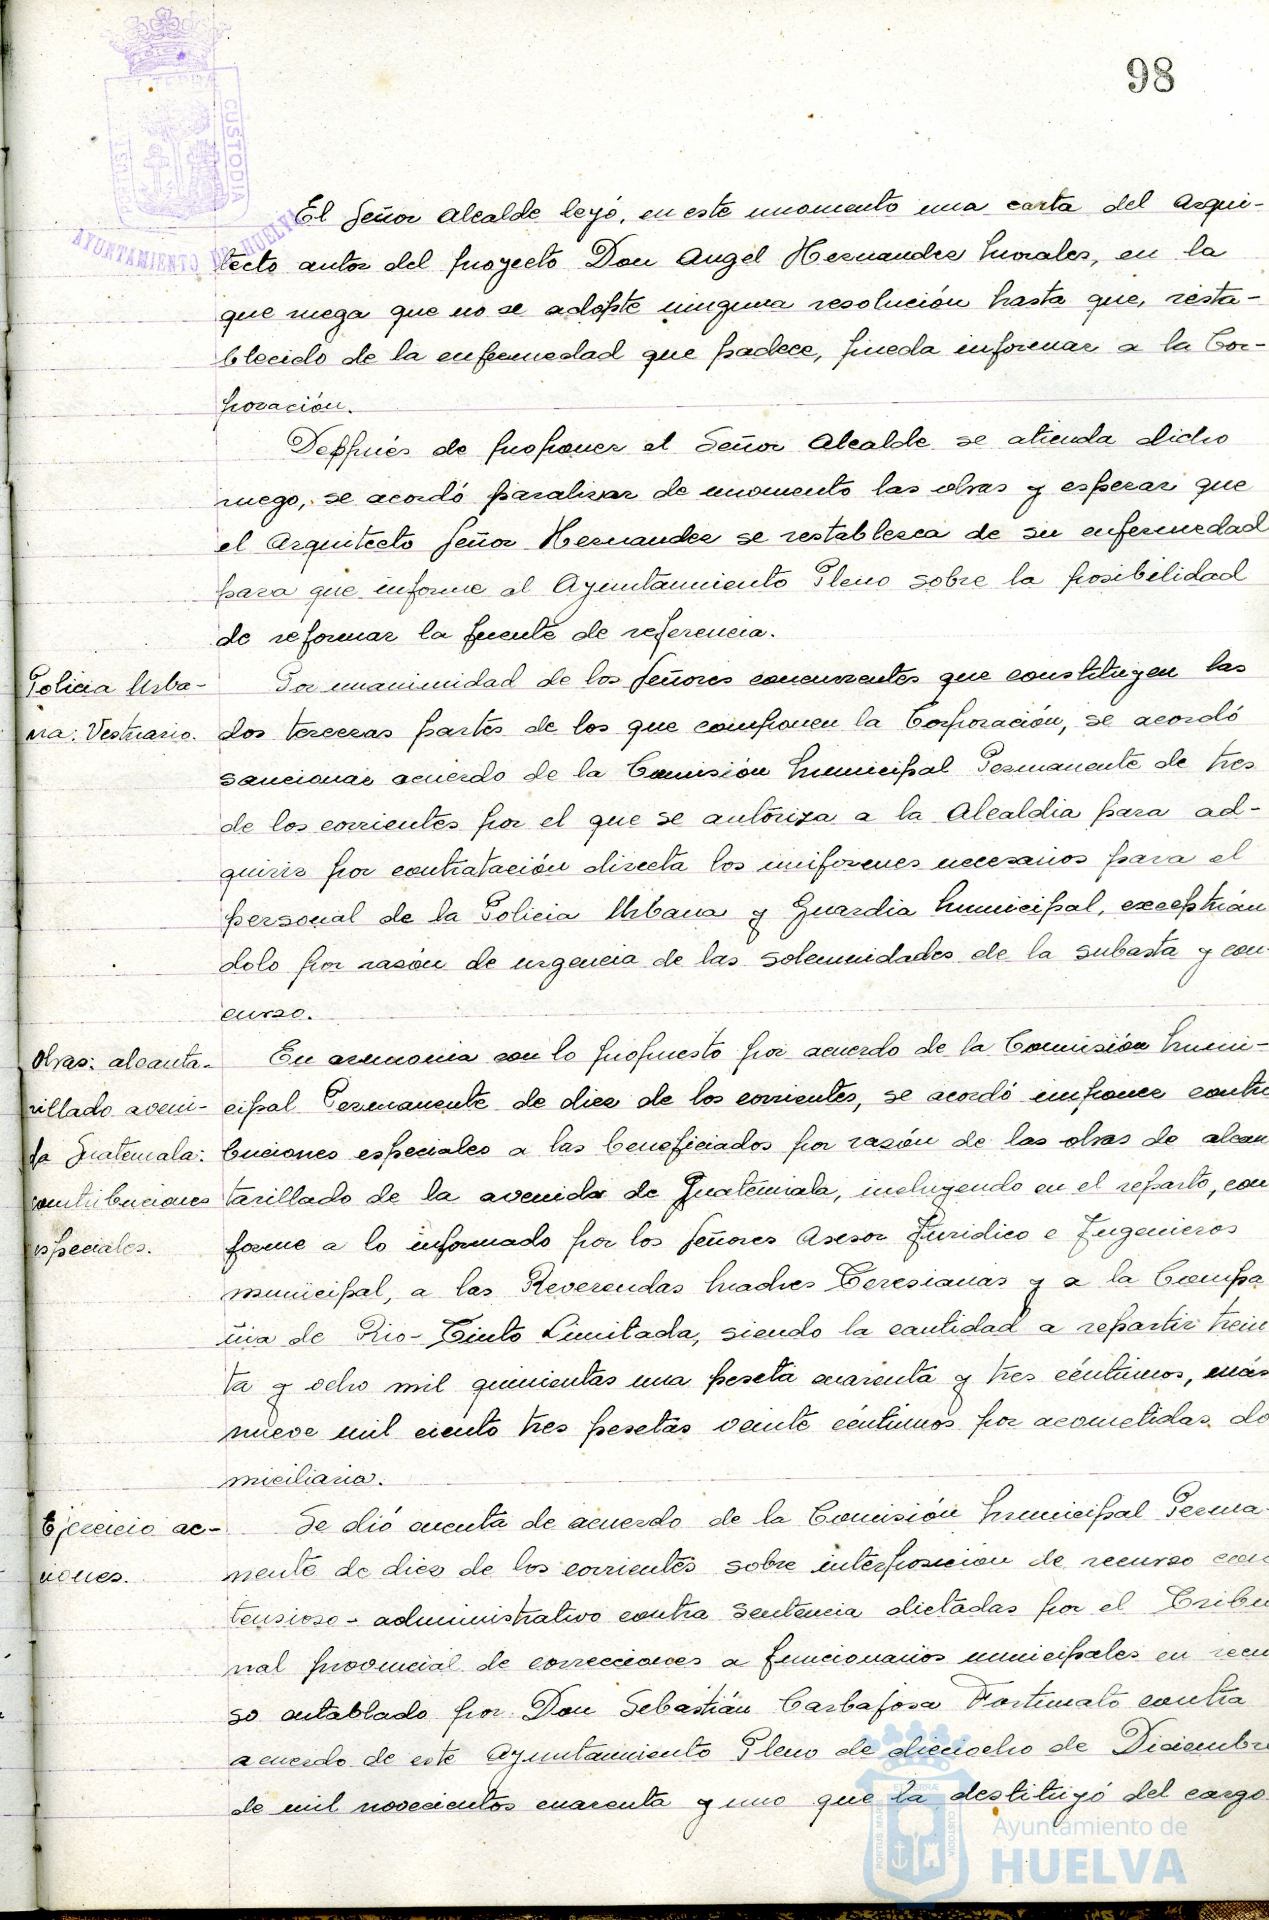 98
El Señor Alcalde leyó, en este momento una carta del Arqui-
tecto autor del proyecto Don Angel Hernandez Morales, en la
que ruega que no se adopte ninguna resolución hasta que, resta-
blecido de la enfermedad que padece, pueda informar a la Cor-
poración.
Deppués de proponer el Señor Alcalde se atienda dicho
ruego, se acordó paralizar de momento las obras y esperar que
el Arquitecto Señor Hernandez se restablezca de su enfermedad
para que informe al Ayuntamiento Pleno sobre la posibilidad
de reformar la fuente de referencia.
Policia Urba-
na: Vestuario.
Por unanimidad de los Señores concurrentes que constituyen las
dos terceras partes de los que componen la Corporación, se acordó
sancionar acuerdo de la Comisión Municipal Permanente de tres
de los corrientes por el que se autoriza a la Alcaldia para ad-
quirir por contratación directa los uniformes necesarios para el
personal de la Policia Urbana y Guardia Municipal, exceptuán
dolo por razón de urgencia de las solemnidades de la subasta y con-
curso.
Obras: alcanta-
rillado aveni-
da Guatemala:
contribuciones
especiales.
En armonia con lo propuesto por acuerdo de la Comisión Muni-
cipal Permanente de diez de los corrientes, se acordó imponer contri
buciones especiales a las beneficiados por razón de las obras de alcan
tarillado de la avenida de Guatemala, incluyendo en el reparto, con
forme a lo informado por los Señores Asesor Juridico e Ingenieros
municipal, a las Reverendas Madres Teresianas y a la Compa
ñia de Rio-Tinto Limitada, siendo la cantidad a repartir trein
ta y ocho mil quinientas una peseta cuarenta y tres céntimos, más
nueve mil ciento tres pesetas veinte céntimos por acometidas do
miciliaria.
Ejercicio ac-
ciones.
Se dió cuenta de acuerdo de la Comisión Municipal Perma-
nente de diez de los corrientes sobre interposición de recurso con
tensioso-administrativo contra sentencia dictadas por el Tribu
nal provincial de correcciones a funcionarios municipales en recur
so entablado por Don Sebastián Carbajosa Fortunato contra
acuerdo de este Ayuntamiento Pleno de dieciocho de Diciembre
de mil novecientos cuarenta y uno que la destituyó del cargo
AYUNTAMIENTO DE HUELVA
CUSTODIA
PORTUS MARIS
ET TERRÆ
CUSTODIA
Ayuntamiento de
HUELVA